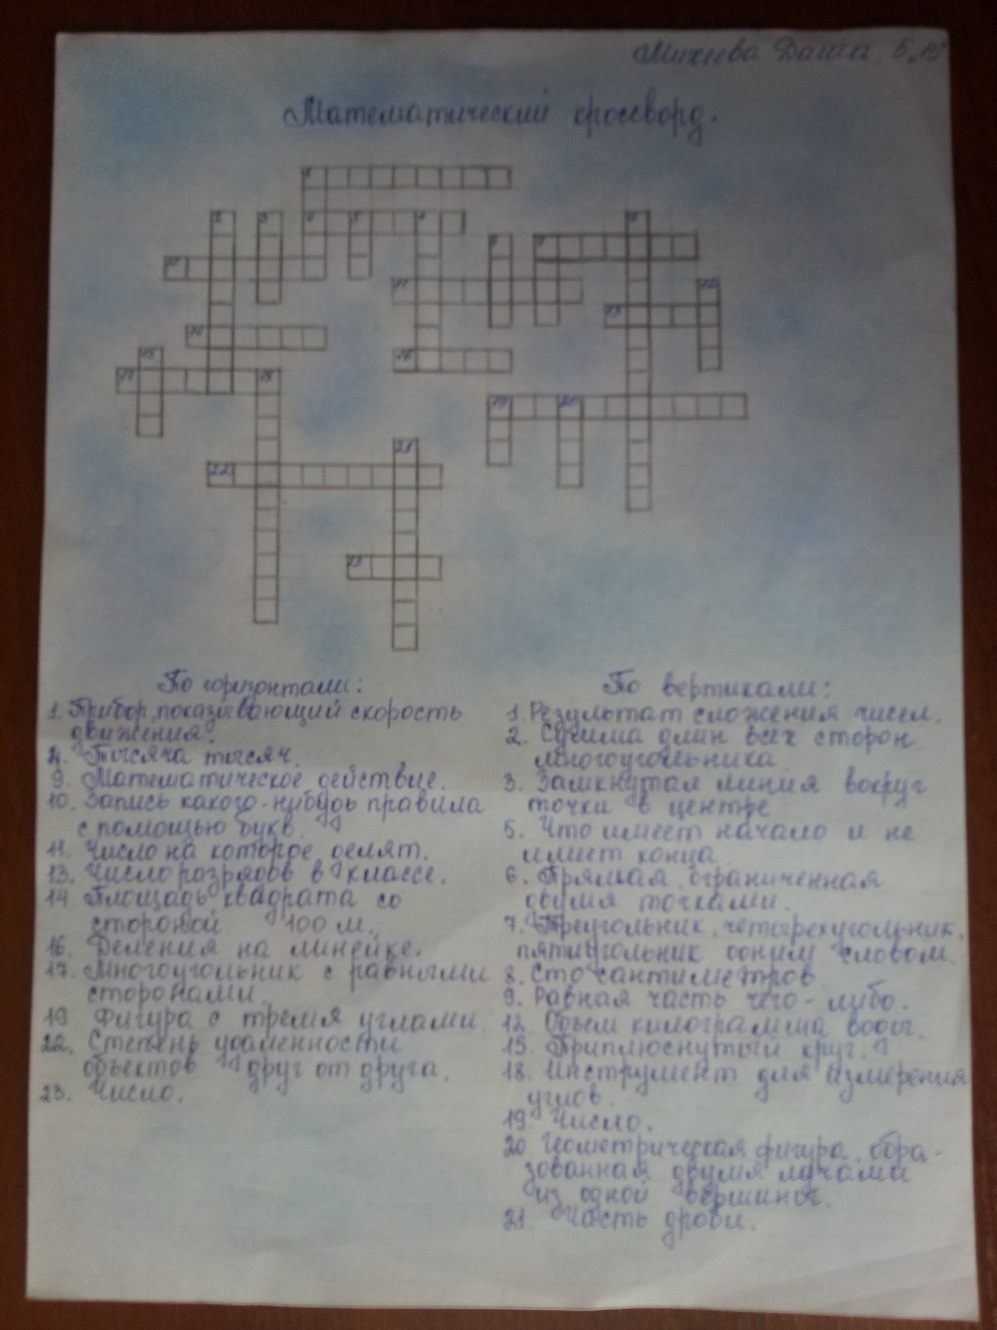 Михеева Даша, 5 "
Математический кроссворд.
1
2 3 4 5 6 7
8 9
10
11 12
13
14
15 16
17 18
19 20
21
22
23
По горизонтали:
1. Прибор, показывающий скорость
движения.
4. Тысяча тысяч.
9. Математическое действие.
10. Запись какого-нибудь правила
с помощью букв.
11. Число на которое делят.
13. Число разрядов в классе.
14. Площадь квадрата со
стороной 100 м.
16. Деления на линейке.
17. Многоугольник с равными
сторонами.
19. Фигура с тремя углами.
22. Степень удаленности
объектов друг от друга.
23. Число.
По вертикали:
1. Результат сложения чисел.
2. Сумма длин всех сторон
многоугольника.
3. Замкнутая линия вокруг
точки в центре
5. Что имеет начало и не
имеет конца
6. Прямая, ограниченная
двумя точками.
7. Треугольник, четырехугольник,
пятиугольник одним словом.
8. Сто сантиметров
9. Равная часть чего-либо.
12. Объем килограмма воды.
15. Приплюснутый круг.
18. Инструмент для измерения
углов.
19. Число.
20. Геометрическая фигура, обра-
зованная двумя лучами
из одной вершины.
21. Часть дроби.